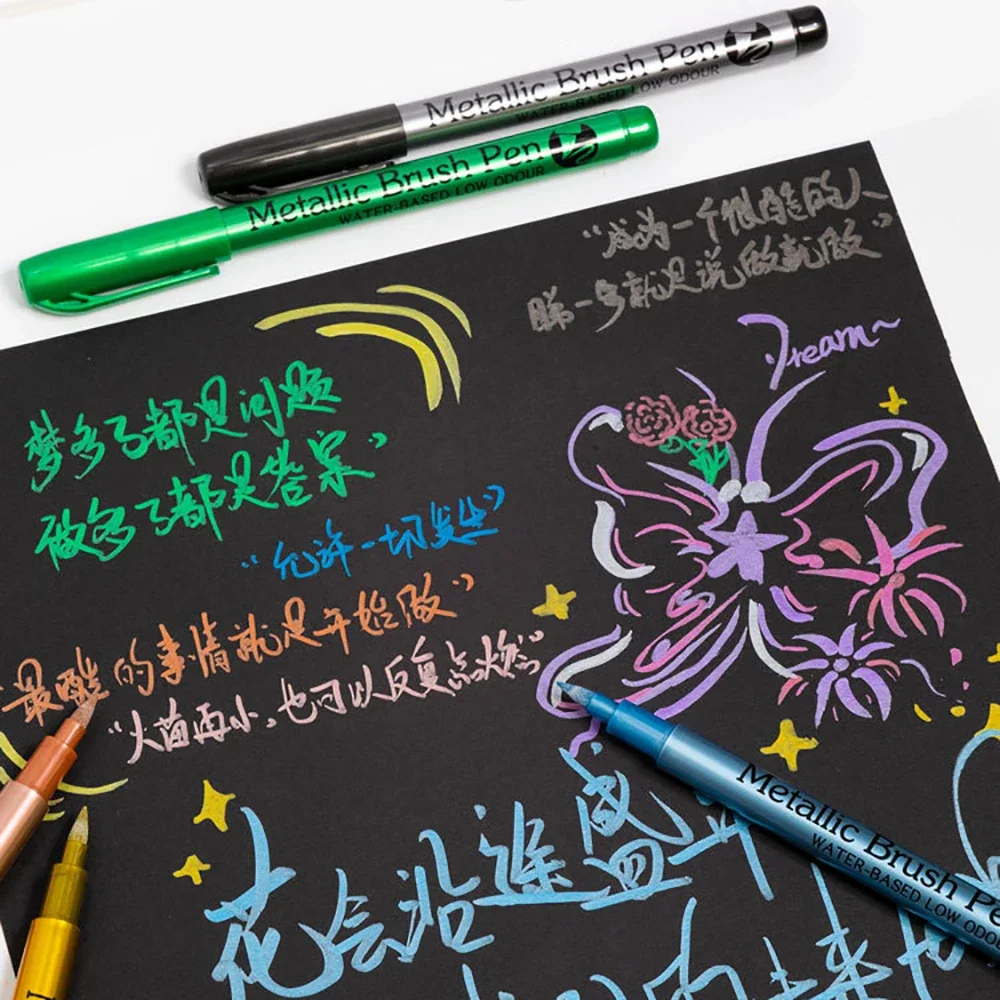 Metallic Brush Pen
WATER-BASED LOW ODOUR
Metallic Brush Pen
WATER-BASED LOW ODOUR
“成为一个很酷的人
第一步就是说做就做”
Dream~
梦多了都是问题
做多了都是答案”
“允许一切发生”
最酷的事情就是开始做”
“火苗再小，也可以反复点燃”
花会沿途盛开
Metallic Brush Pe
WATER-BASED LOW ODOU